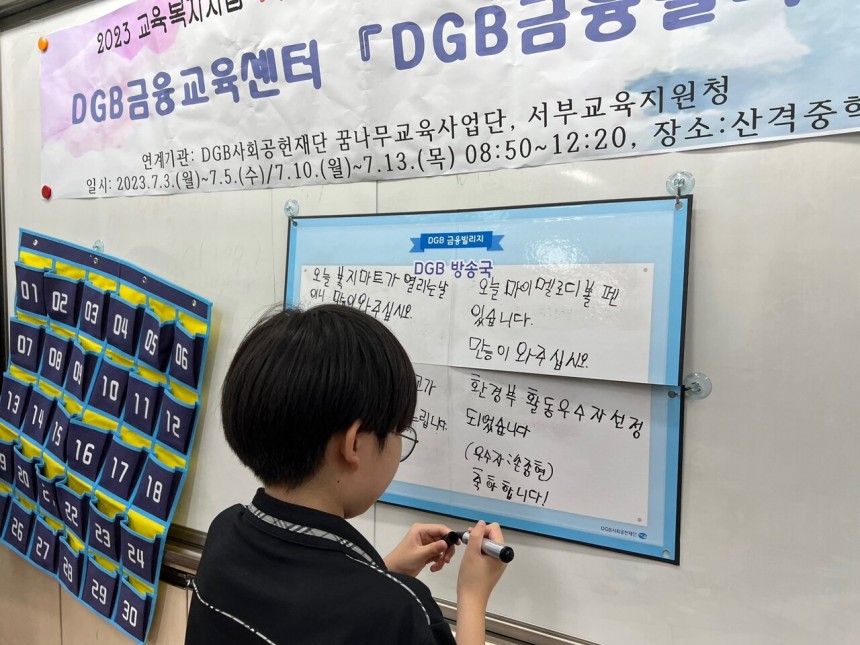 2023 교육복지사업
DGB금융교육센터 『DGB금융빌리지
연계기관: DGB사회공헌재단 꿈나무교육사업단, 서부교육지원청
일시: 2023.7.3.(월)~7.5.(수)/7.10.(월)~7.13.(목) 08:50~12:20, 장소:산격중학
DGB 금융빌리지
DGB 방송국
오늘 복지마트가 열리는날
이니 많이와주십시오.
오늘 마이멜로디볼펜
있습니다.
만능이 와주십시오.
환경부 활동우수자선정
되었습니다
(우수자:손중현)
축하합니다!
DGB사회공헌재단
01 02 03 04 05 06
07 08 09 10 11 12
13 14 15 16 17 18
19 20 22 23 24
26 27 28 29 30